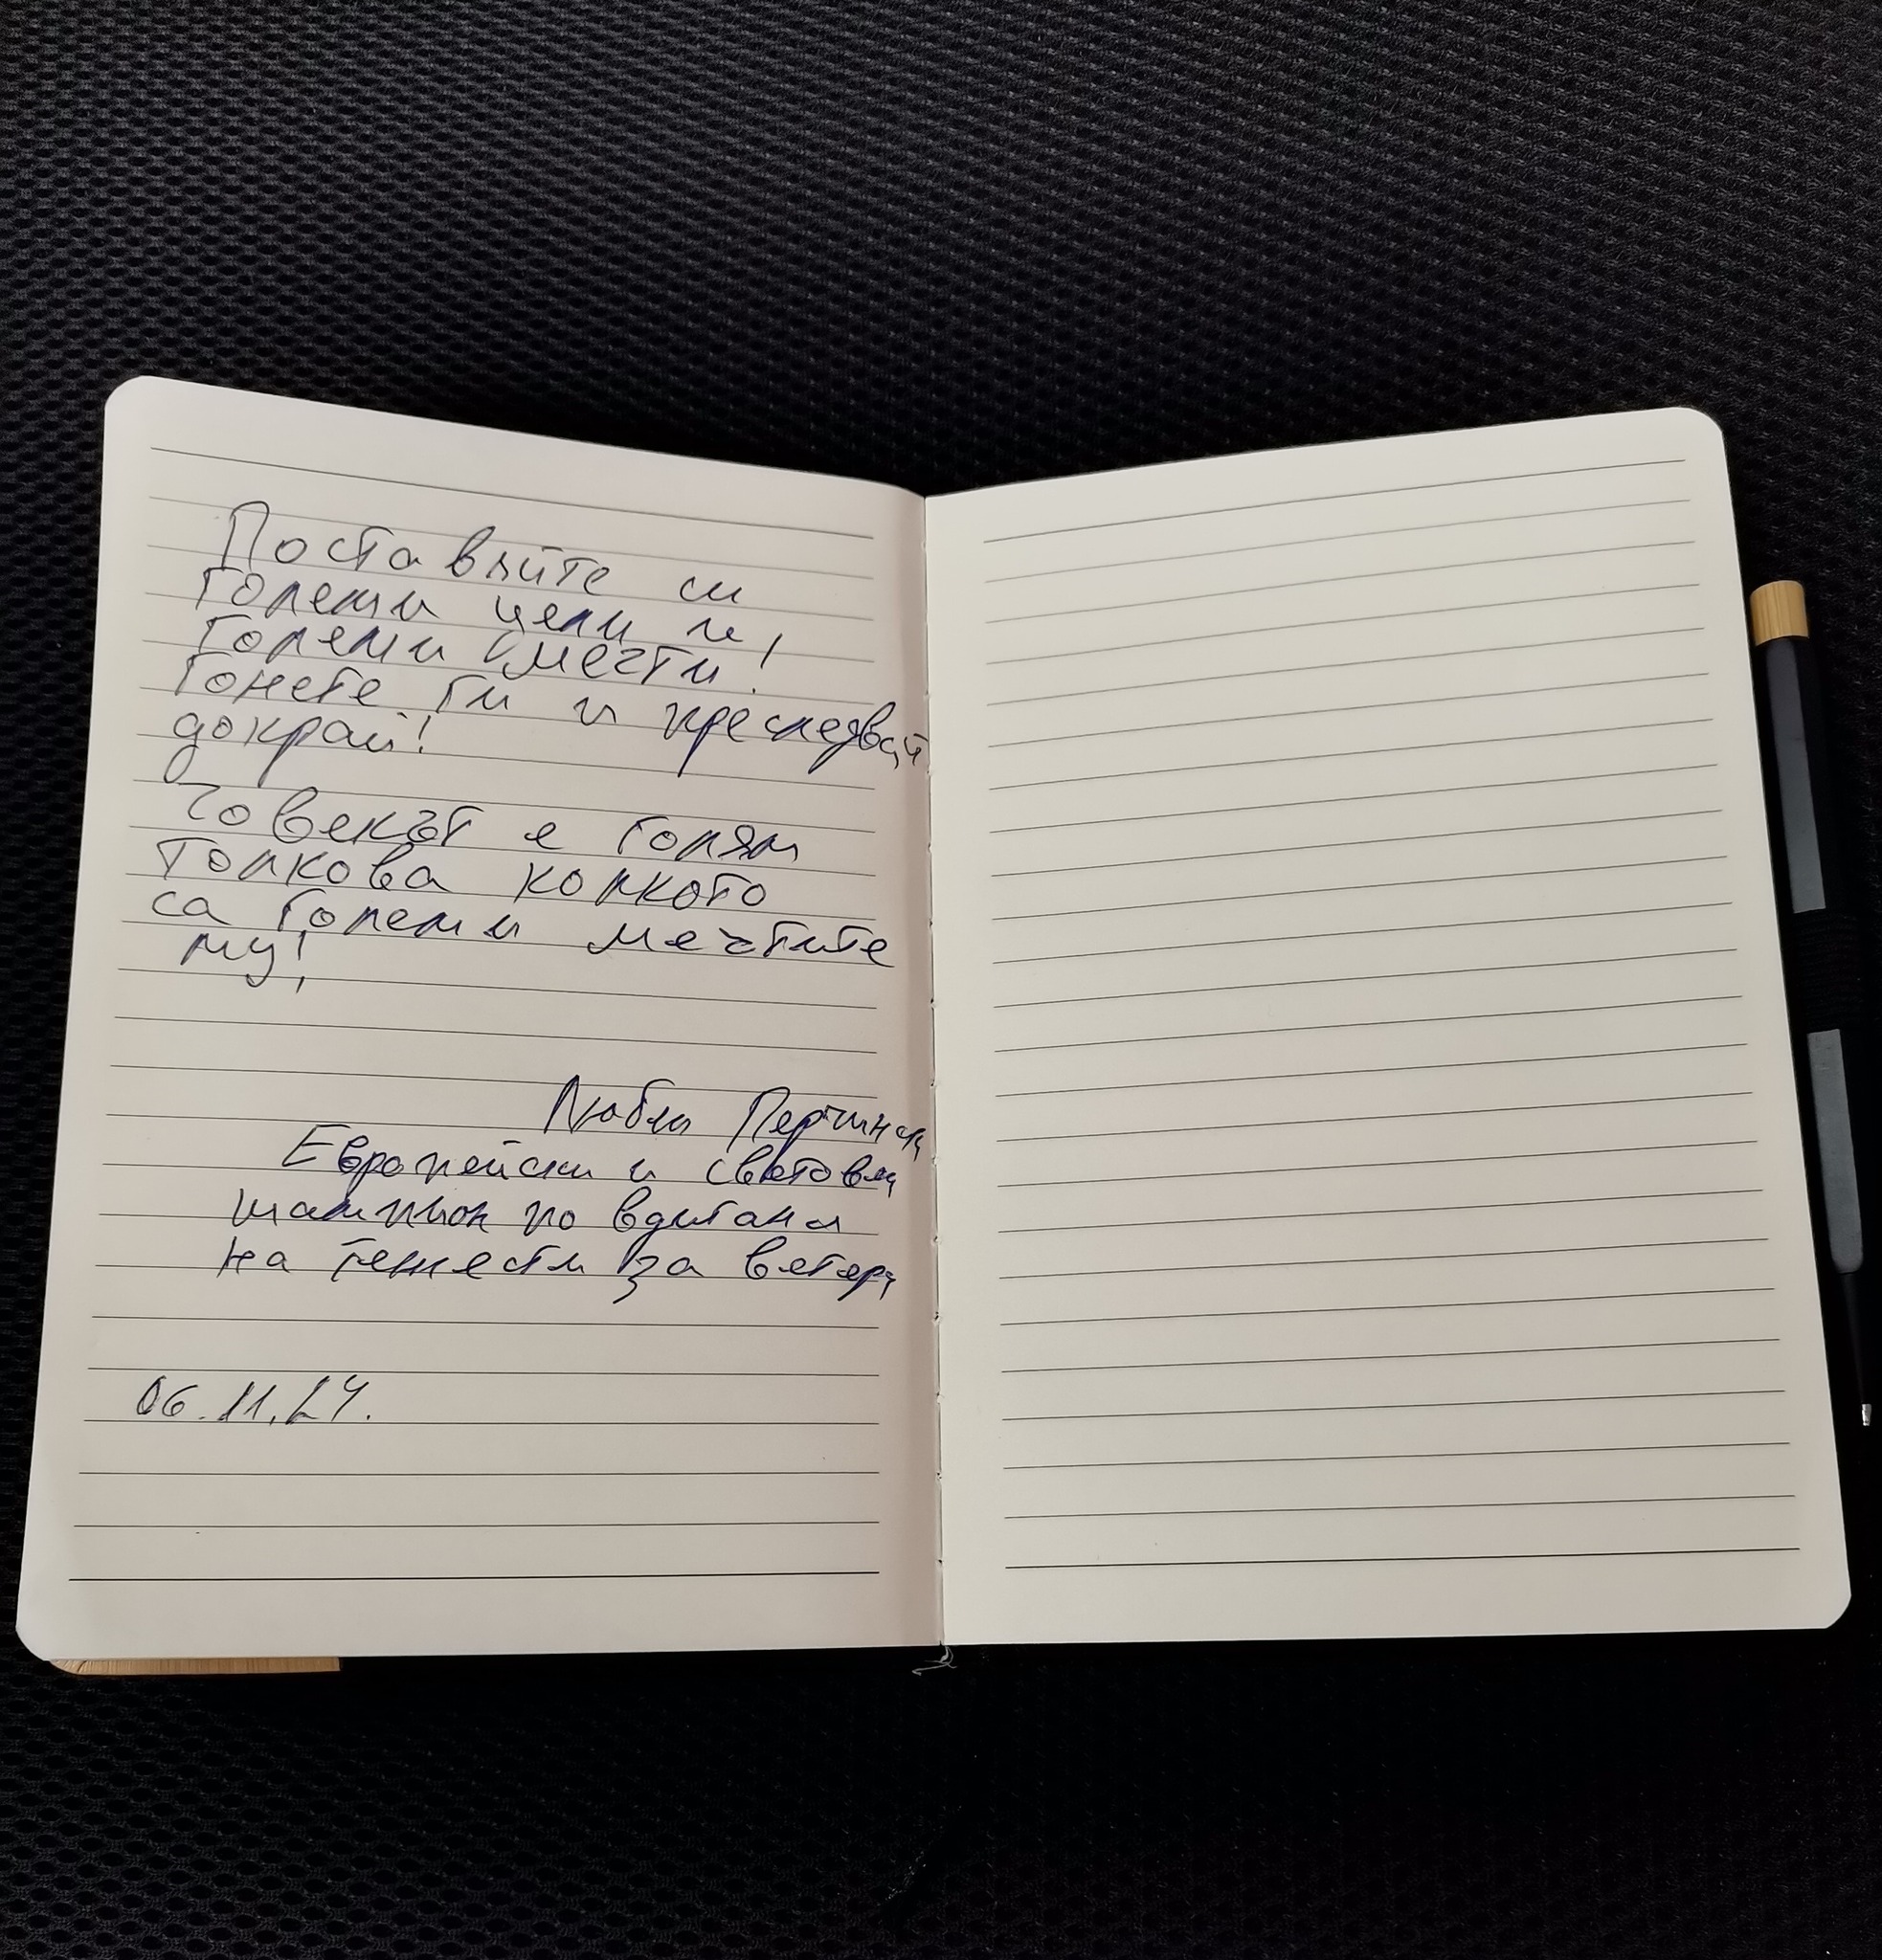 Поставяйте си
големи цели и
големи мечти!
Гонете ги и преследвайт
докрай!
Човекът е голям
толкова колкото
са големи мечтите
му!
Любен
Европейски и световен
шампион по вдигане
на тежести за ветер
06.11.24.